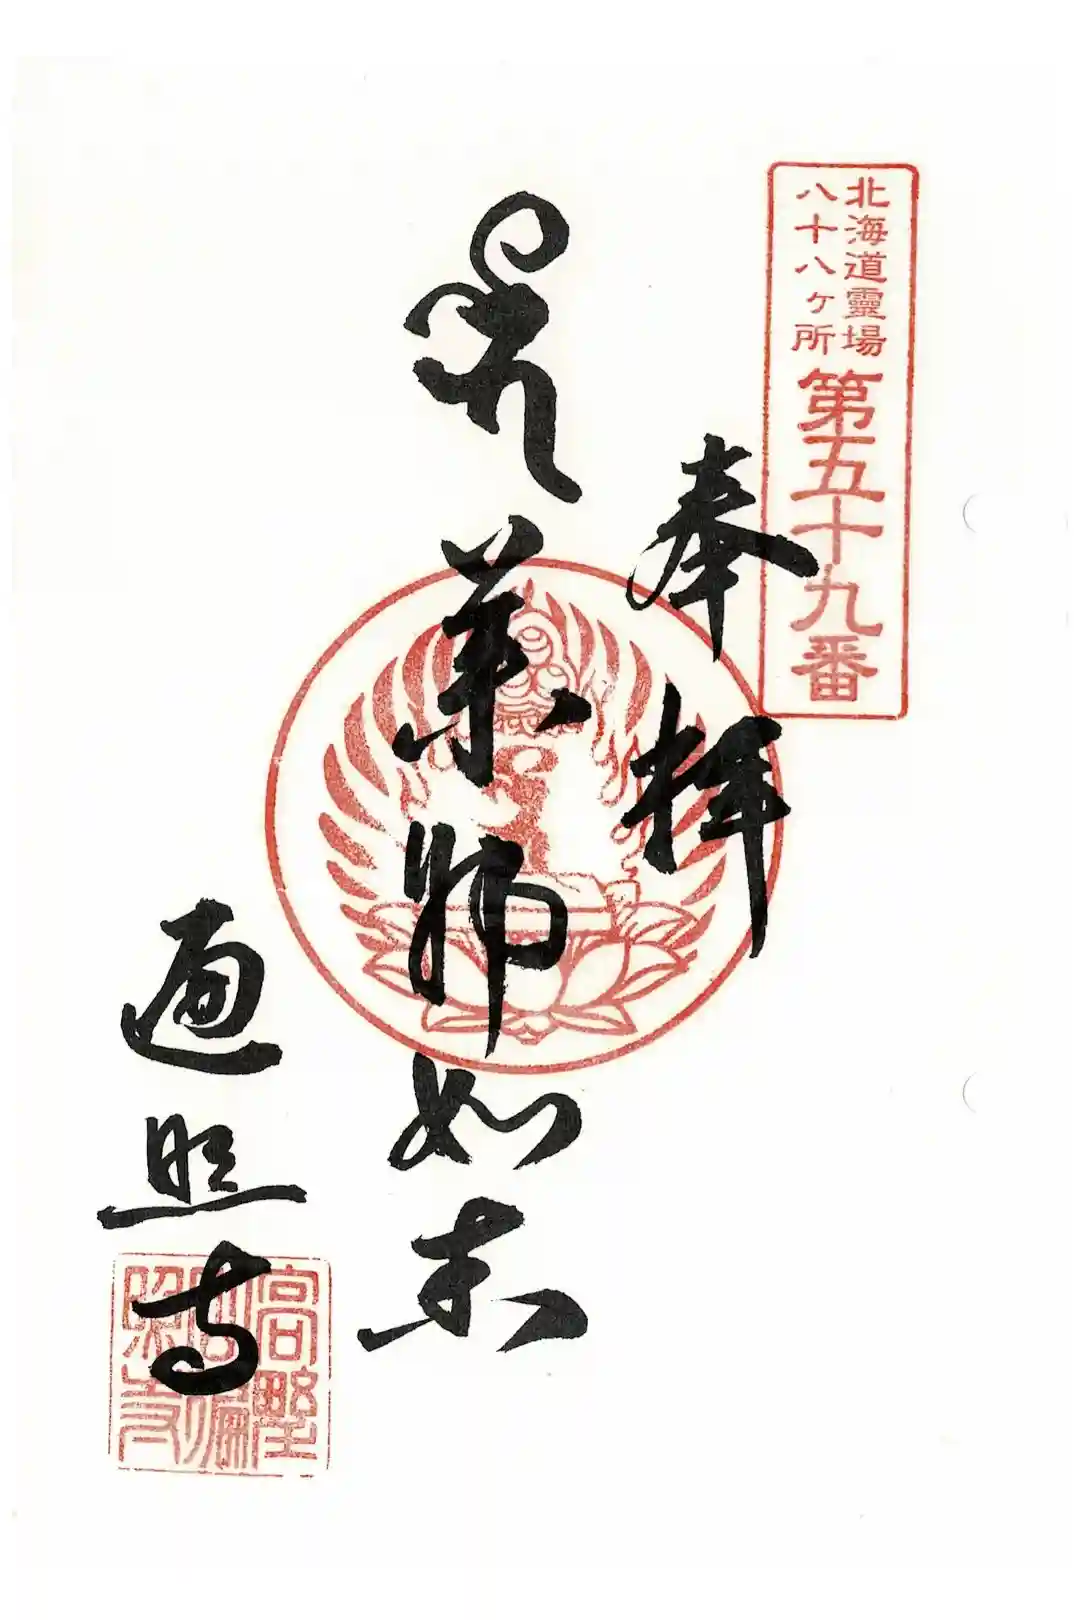 北海道靈場
八十八ヶ所
第五十九番
奉拝
薬師如来
遍照寺